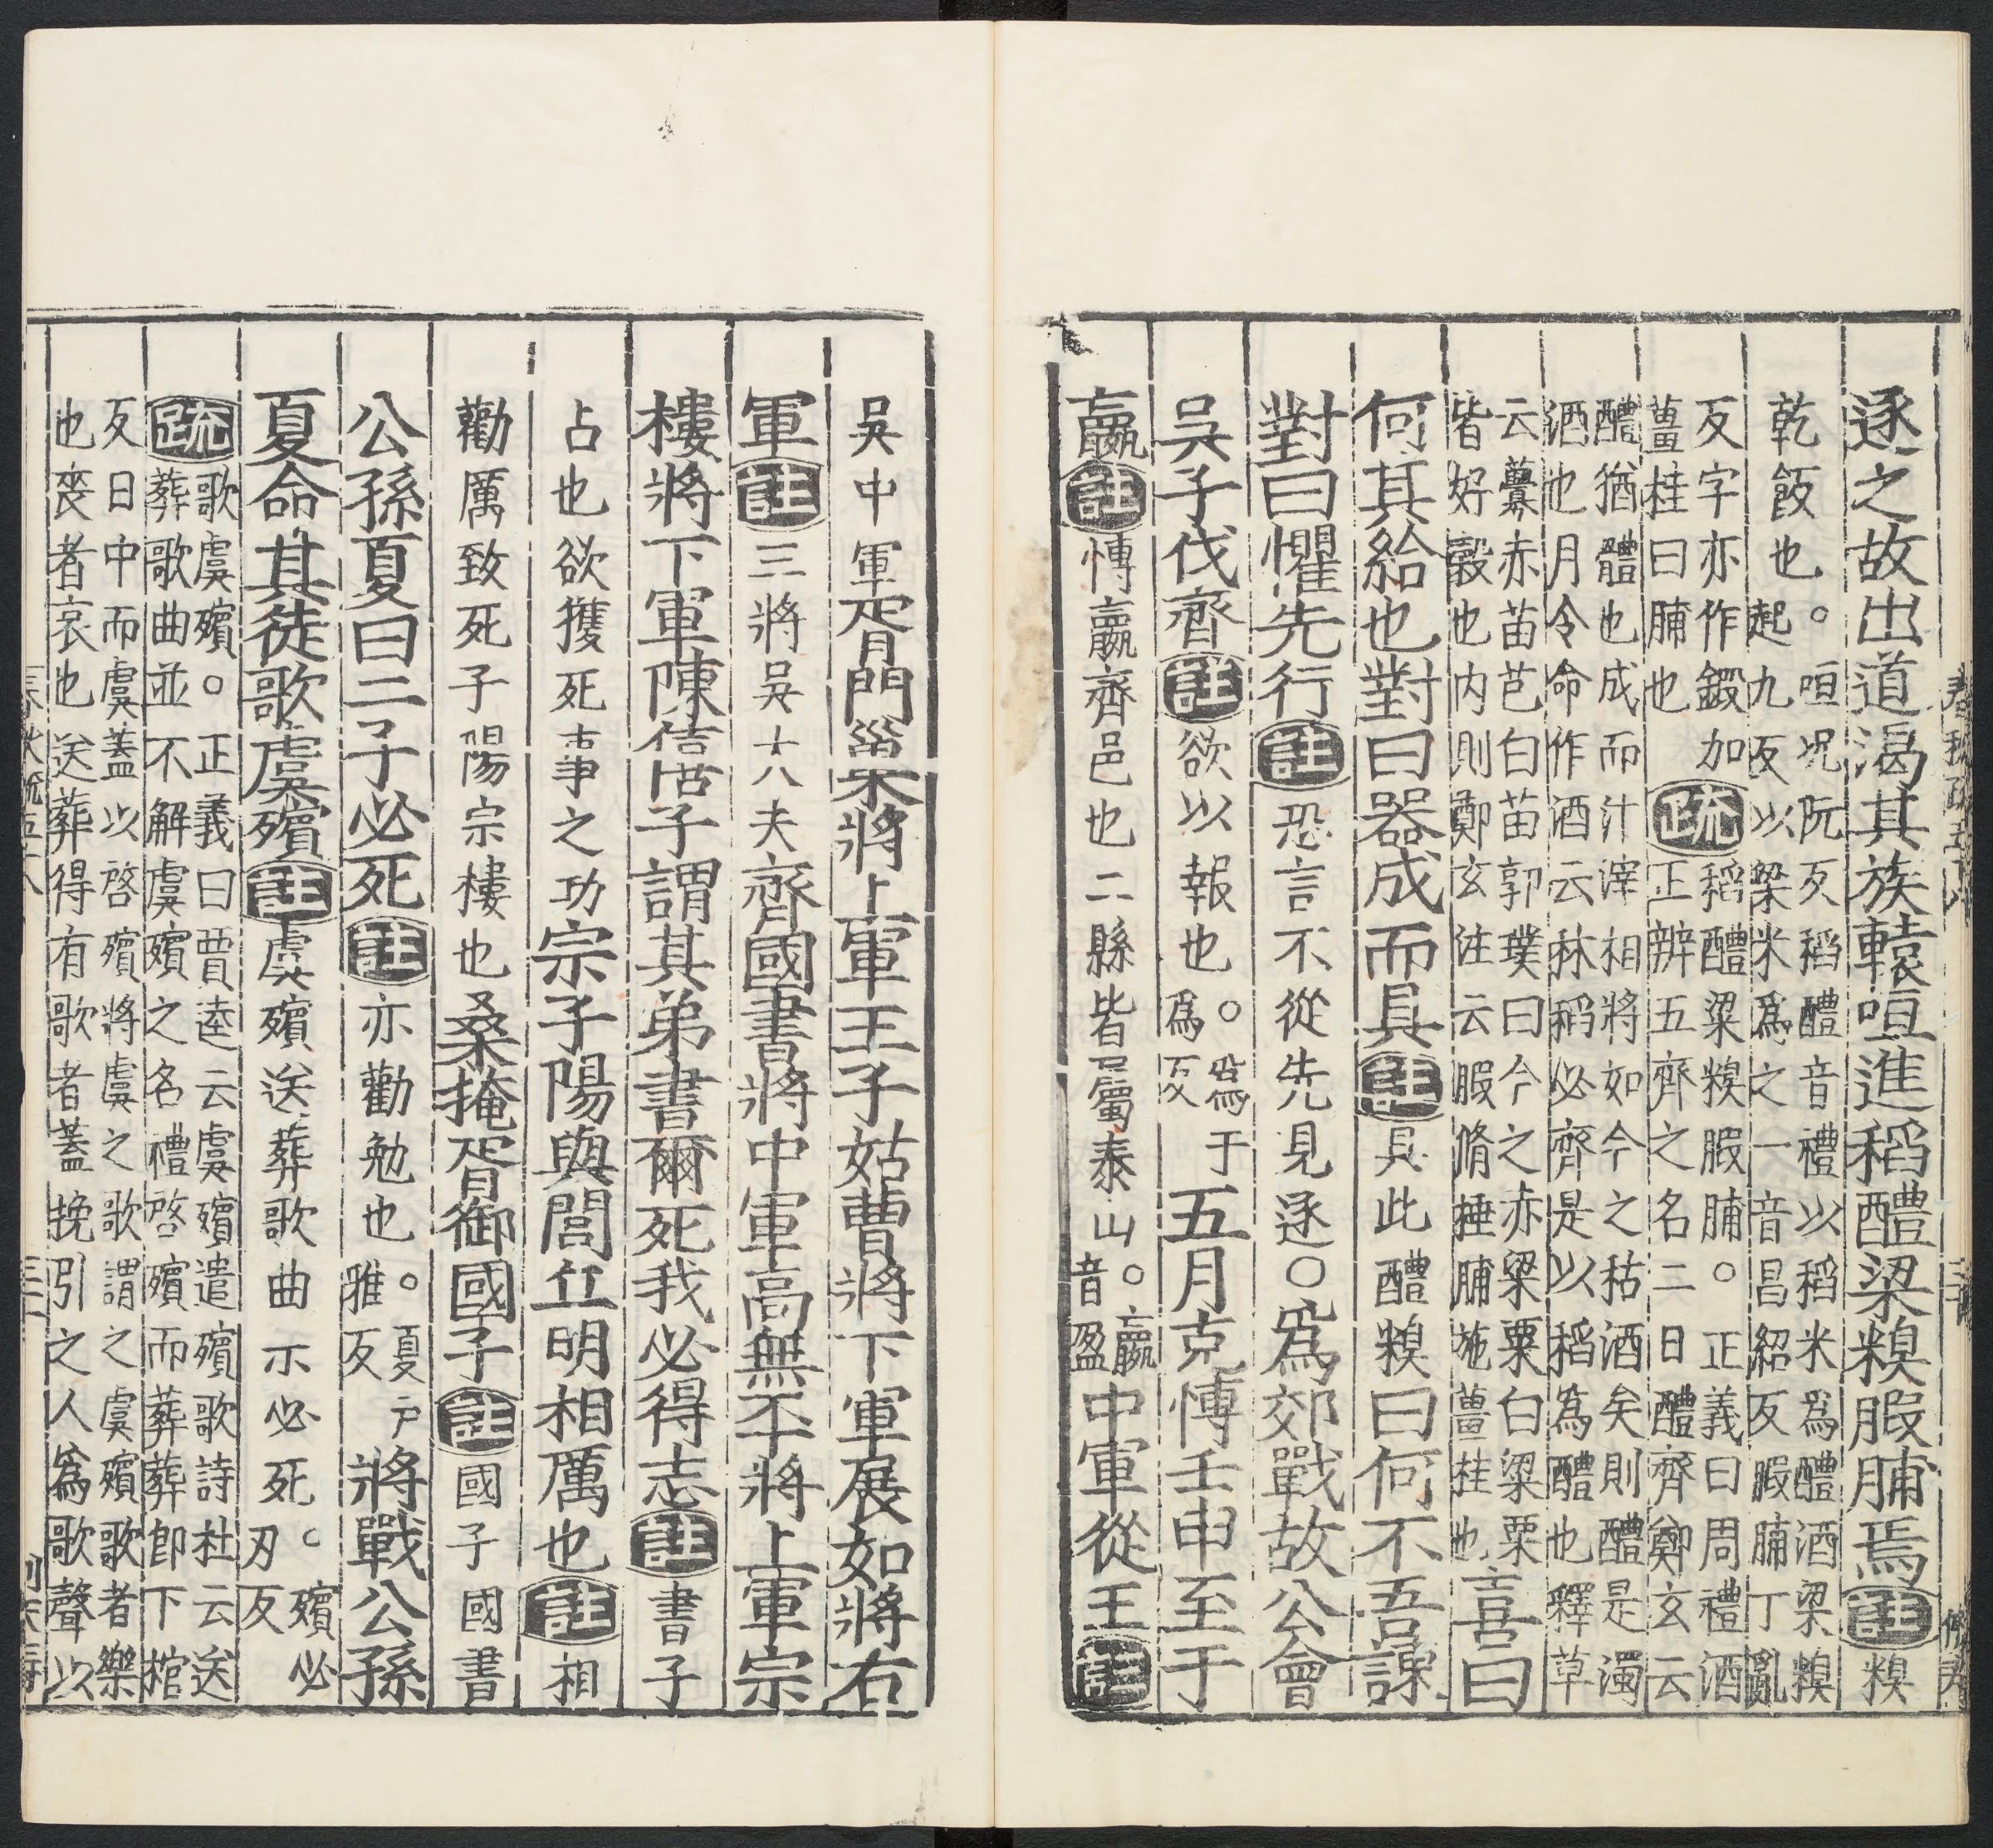 逐之故出道渴其族轅咺進稻醴粱糗腶脯焉註糗
乾飯也。咺況阮反稻醴音禮以稻米爲醴酒粱糗
起九反以粱米爲之一音昌紹反腶脯丁亂
反字亦作鍛加
薑桂曰脯也疏稻醴粱糗腶脯。正義曰周禮酒
正辨五齊之名二曰醴齊鄭玄云
醴猶體也成而汁滓相將如今之恬酒矣則醴是濁
酒也月令命作酒云秫稻必齊是以稻爲醴也釋草
云虋赤苗芑白苗郭璞曰今之赤粱粟白粱粟
皆好穀也内則鄭玄注云腶脩捶脯施薑桂也喜曰
何其給也對曰器成而具註具此醴糗曰何不吾諫
對曰懼先行註恐言不從先見逐○爲郊戰故公會
吳子伐齊註欲以報也。爲于
爲反五月克博壬申至于
嬴註博嬴齊邑也二縣皆屬泰山。嬴
音盈中軍從王註
吳中軍胥門巢將上軍王子姑曹將下軍展如將右
軍註三將吳大夫齊國書將中軍高無㔻將上軍宗
樓將下軍陳僖子謂其弟書爾死我必得志註書子
占也欲獲死事之功宗子陽與閭丘明相厲也註相
勸厲致死子陽宗樓也桑掩胥御國子註國子國書
公孫夏曰二子必死註亦勸勉也。夏戶
雅反將戰公孫
夏命其徒歌虞殯註虞殯送葬歌曲示必死。殯必
刃反
疏歌虞殯。正義曰賈逵云虞殯遣殯歌詩杜云送
葬歌曲並不解虞殯之名禮啓殯而葬葬卽下棺
反日中而虞蓋以啓殯將虞之歌謂之虞殯歌者樂
也喪者哀也送葬得有歌者蓋挽引之人爲歌聲以